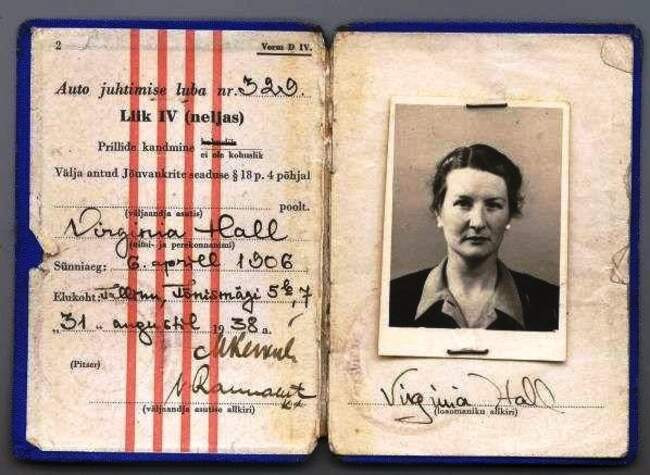 2 Vorm D IV.
Auto juhtimise luba nr. 329.
Liik IV (neljas)
Prillide kandmine kohuslik
ei ole kohuslik
Välja antud Jõuvankrite seaduse § 18 p. 4 põhjal
poolt.
(väljaandja asutis)
Virginia Hall
(nimi- ja perekonnanimi)
Sünniaeg: 6. aprill 1906
Elukoht: Tallinn, Tõnismägi 5
"31" augustil 1938 a.
(Pitser)
(väljaandja asutise allkiri)
Virginia Hall
(loaomaniku allkiri)